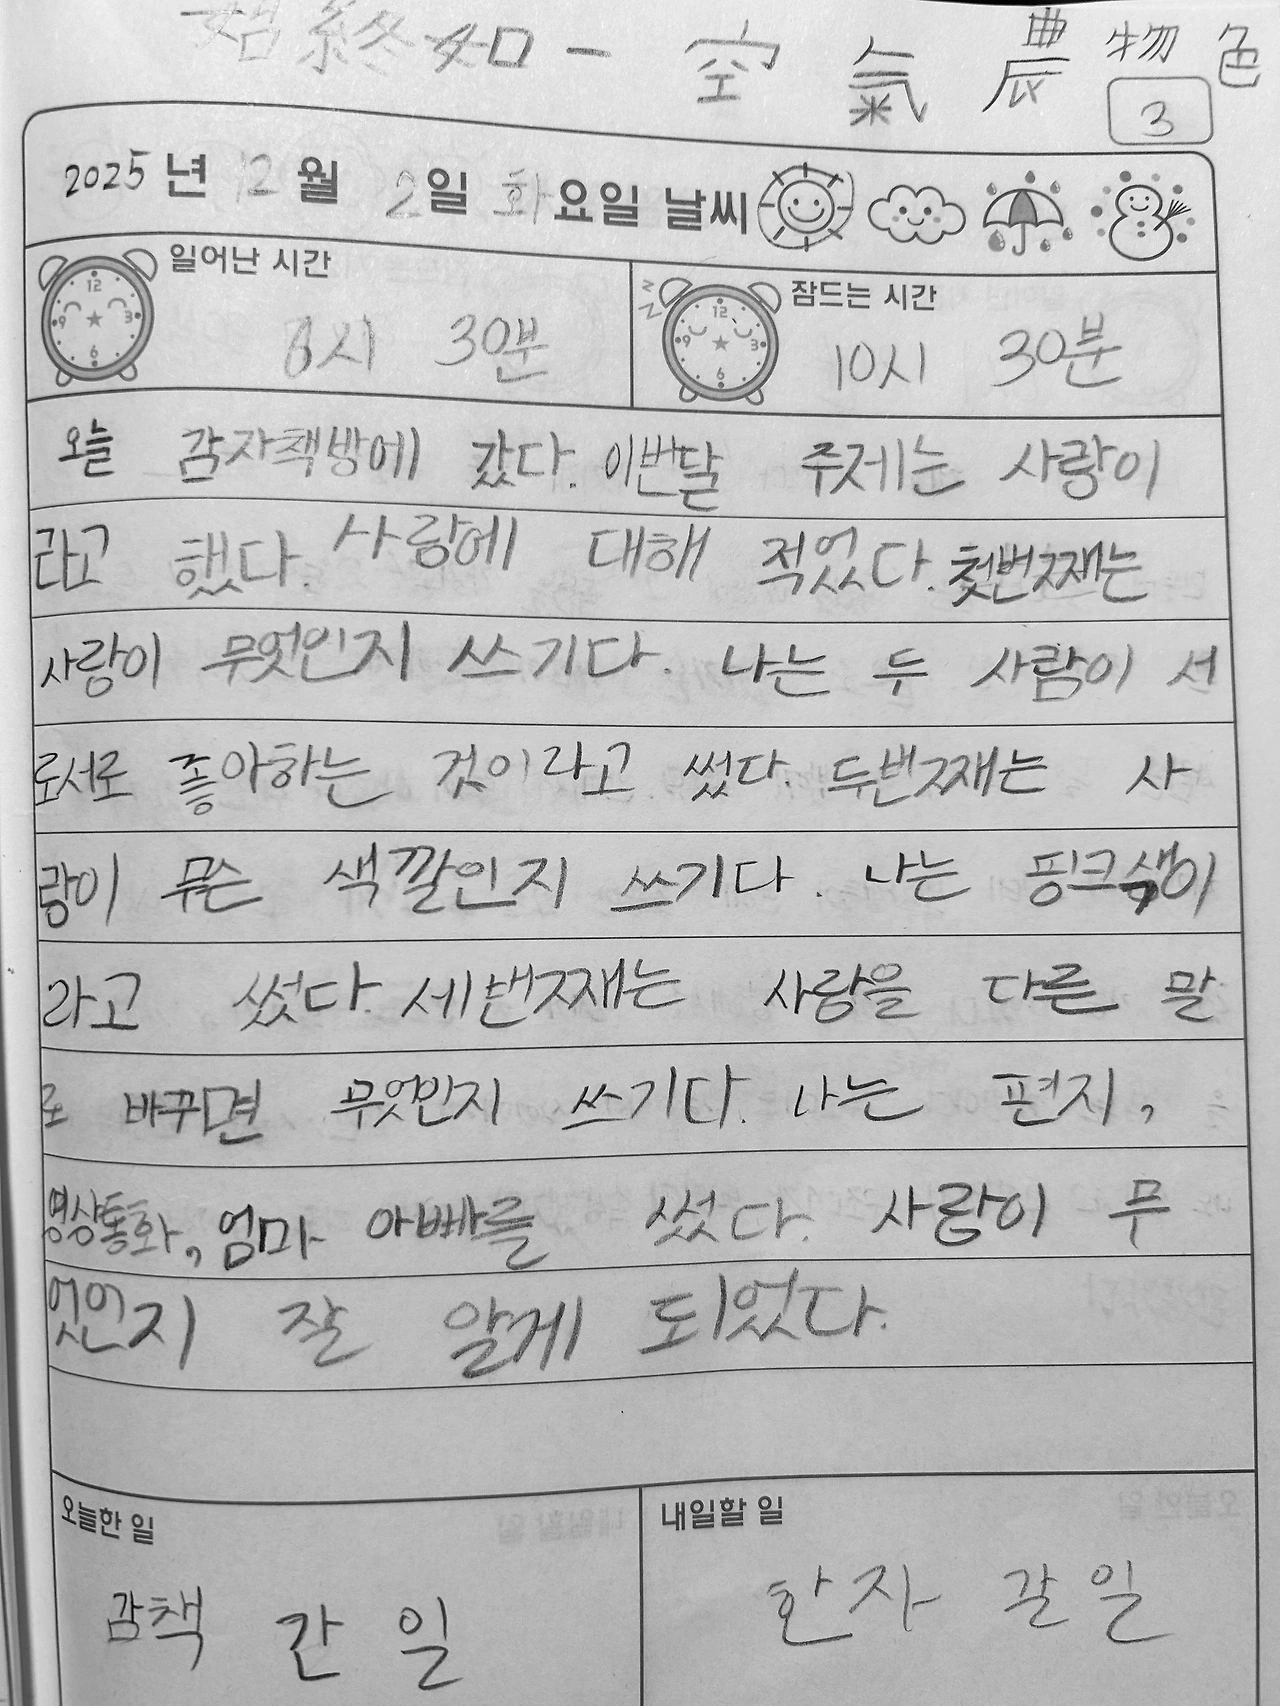 始終如一 空氣 農物色
3
2025년 12월 2일 화요일 날씨
일어난 시간 잠드는 시간
8시 30분 10시 30분
오늘 감자책방에 갔다. 이번달 주제는 사랑이
라고 했다. 사랑에 대해 적었다. 첫번째는
사랑이 무엇인지 쓰기다. 나는 두 사람이 서
로서로 좋아하는 것이라고 썼다. 두번째는 사
랑이 무슨 색깔인지 쓰기다. 나는 핑크색이
라고 썼다. 세번째는 사랑을 다른 말
로 바꾸면 무엇인지 쓰기다. 나는 편지,
영상통화, 엄마 아빠를 썼다. 사랑이 무
엇인지 잘 알게 되었다.
오늘한 일 내일할 일
감책 간 일 한자 갈 일